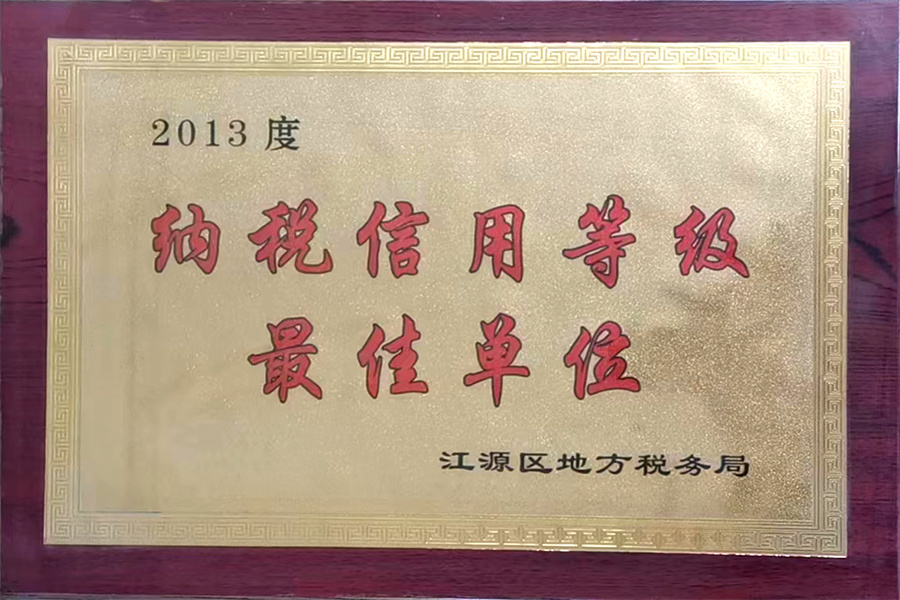 2013 度
纳税信用等级
最佳单位
江源区地方税务局